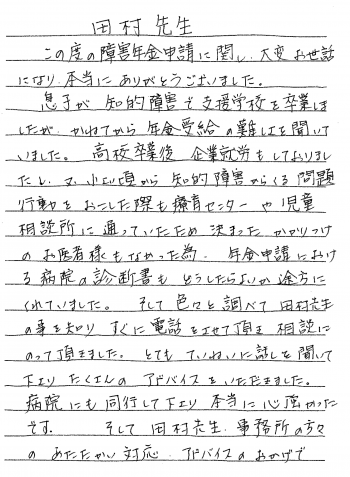 田村先生
この度の障害年金申請に関し、大変お世話
になり、本当にありがとうございました。
息子が知的障害で支援学校を卒業しま
したが、かねてから年金受給の難しさを聞いて
いました。高校卒業後企業就労もしておりまし
たし、又、小さい頃から知的障害からくる問題
行動をおこした際も療育センターや児童
相談所に通っていたため決まったかかりつけ
のお医者様もなかった為、年金申請におけ
る病院の診断書もどうしたらよいか途方に
くれていました。そして色々と調べて田村先生
の事を知りすぐに電話をさせて頂き相談に
のって頂きました。とてもていねいに話しを聞いて
下さりたくさんのアドバイスをいただきました。
病院にも同行して下さり本当に心強かった
です。そして田村先生、事務所の方々
のあたたかい対応、アドバイスのおかげで